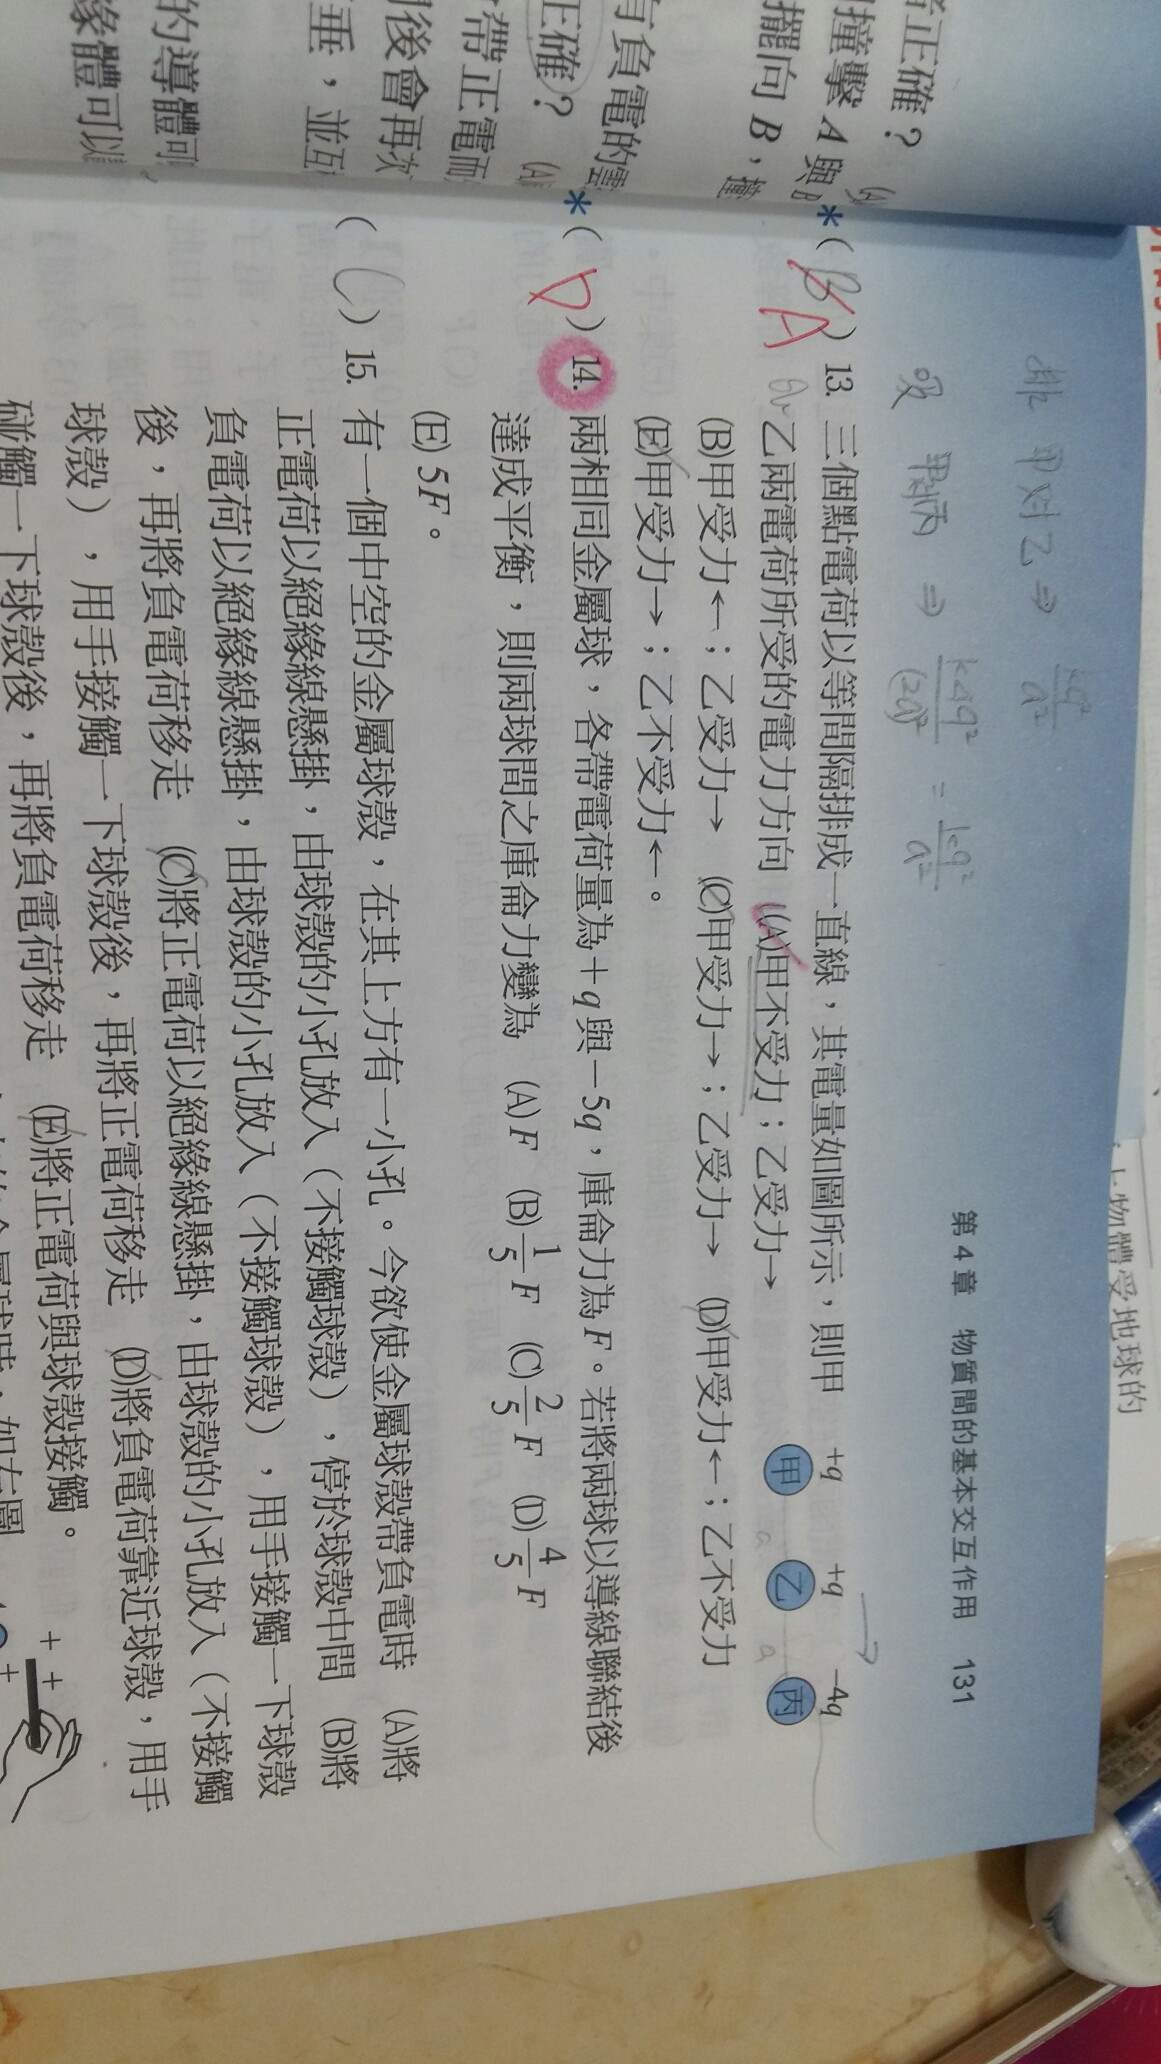 者正確？
撞擊 A 與 B
擺向 B，撞
有負電的雲
正確？ (A)
帶正電而
後會再次
垂，並互
的導體可
緣體可以
物體受地球的
第 4 章　物質間的基本交互作用　131
斥 甲对乙 ⇒ kq²/a²
吸 甲对丙 ⇒ k4q²/(2a)² = kq²/a²
*( B A ) 13. 三個點電荷以等間隔排成一直線，其電量如圖所示，則甲
乙兩電荷所受的電力方向 (A)甲不受力；乙受力→
(B)甲受力←；乙受力→ (C)甲受力→；乙受力→ (D)甲受力←；乙不受力
(E)甲受力→；乙不受力←。
+q +q −4q
甲 a 乙 a 丙
*( D ) 14. 兩相同金屬球，各帶電荷量為＋q 與－5q，庫侖力為 F。若將兩球以導線聯結後
達成平衡，則兩球間之庫侖力變為 (A) F (B) 1/5 F (C) 2/5 F (D) 4/5 F
(E) 5F。
( C ) 15. 有一個中空的金屬球殼，在其上方有一小孔。今欲使金屬球殼帶負電時 (A)將
正電荷以絕緣線懸掛，由球殼的小孔放入（不接觸球殼），停於球殼中間 (B)將
負電荷以絕緣線懸掛，由球殼的小孔放入（不接觸球殼），用手接觸一下球殼
後，再將負電荷移走 (C)將正電荷以絕緣線懸掛，由球殼的小孔放入（不接觸
球殼），用手接觸一下球殼後，再將正電荷移走 (D)將負電荷靠近球殼，用手
碰觸一下球殼後，再將負電荷移走 (E)將正電荷與球殼接觸。
+ +
+